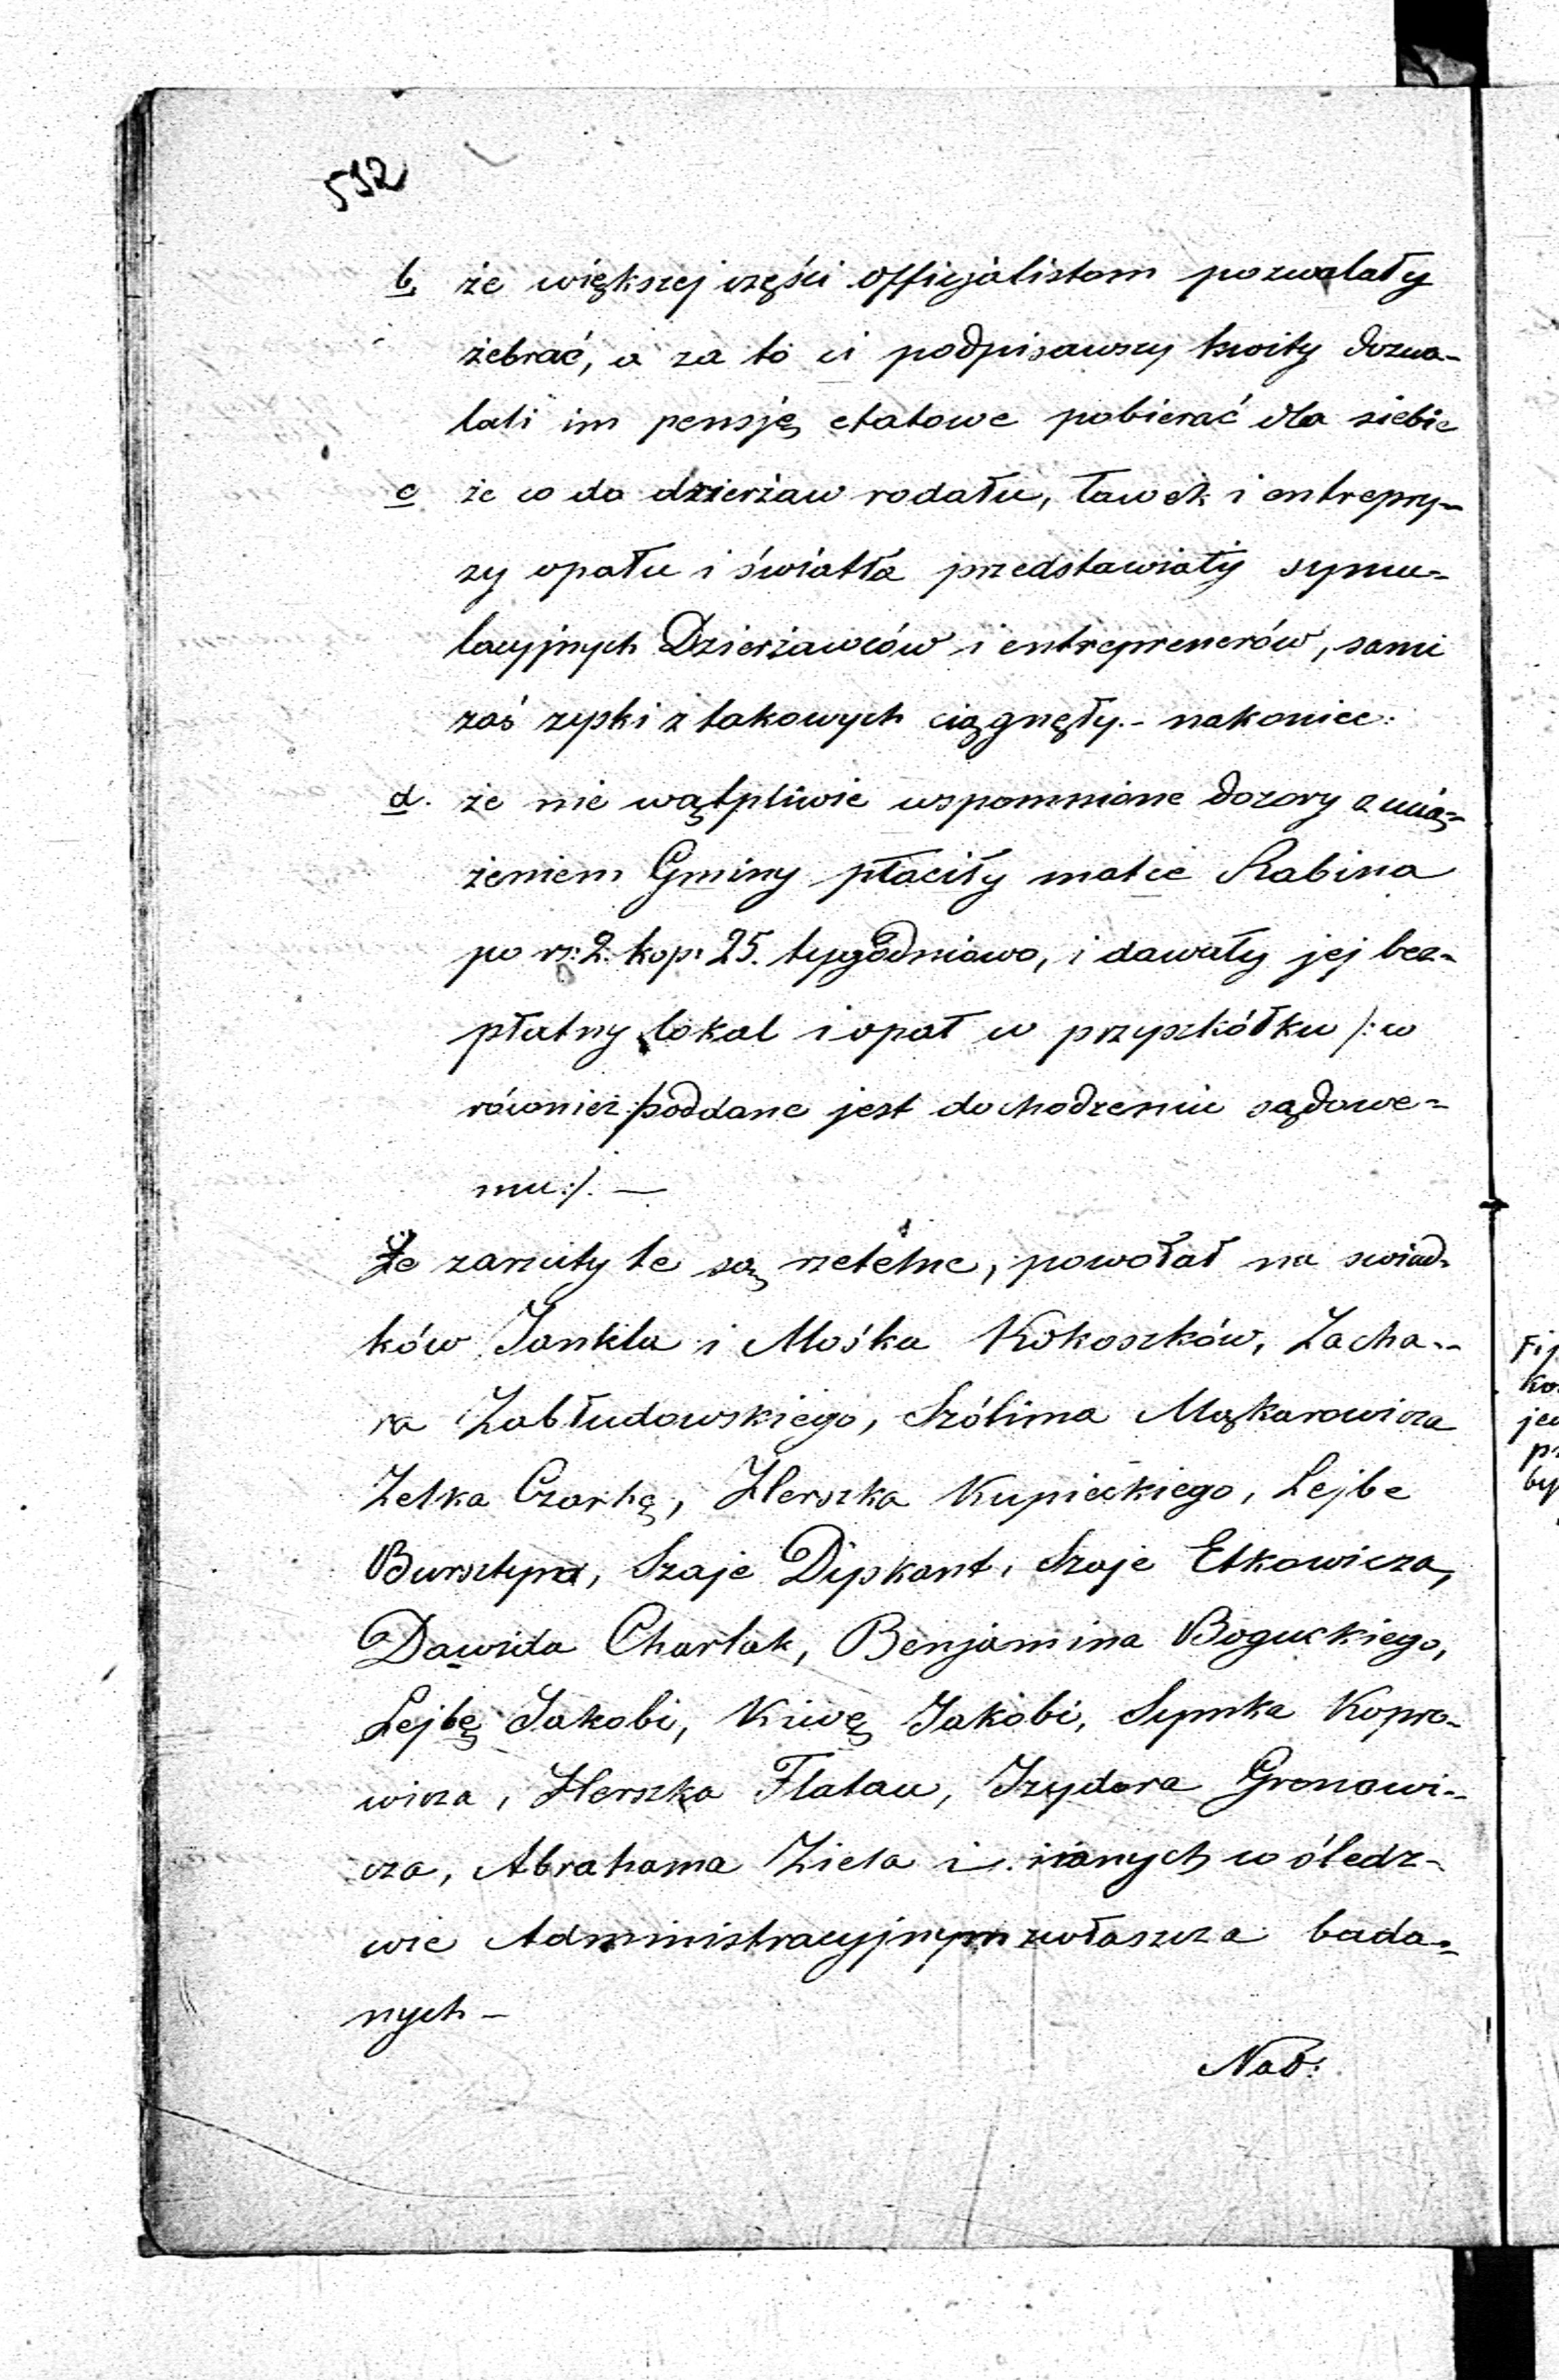 592
b. że większej części officjalistom pozwalały
żebrać, a za to ci podpisawszy kwity dozwa-
lali im pensję etatowe pobierać dla siebie
c że co do dzierżaw rodału, ławek i entrepry-
zy opału i światła przedstawiały symu-
lacyjnych Dzierżawców i entreprenerów, sami
zaś zyski z takowych ciągnęły.- nakoniec:
d. że nie wątpliwie wspomnione dozory z ucią-
żeniem Gminy płaciły matce Rabina
po rs: 2. kop: 25. tygodniowo, i dawały jej bez-
płatny lokal i opał w przyszkółku /: co
również poddane jest dochodzeniu sądowe-
mu:/. —
Że zarzuty te są rzetelne, powołał na swiad-
ków Jankla i Mośka Kokoszków, Zacha-
ra Zabłudowskiego, Szólima Mąkarowicza
Zelka Czarkę, Herszka Kupieckiego, Lejbe
Bursztyna, Szaje Dipkant, Szaje Elkowicza,
Dawida Charlak, Benjamina Boguckiego,
Lejbę Jakobi, Kiwę Jakobi, Symka Kopro-
wicza, Herszka Flatau, Izydora Gronowi-
cza, Abrahama Ziela i innych w śledz-
wie Administracyjnym zwłaszcza bada-
nych –
Nad: